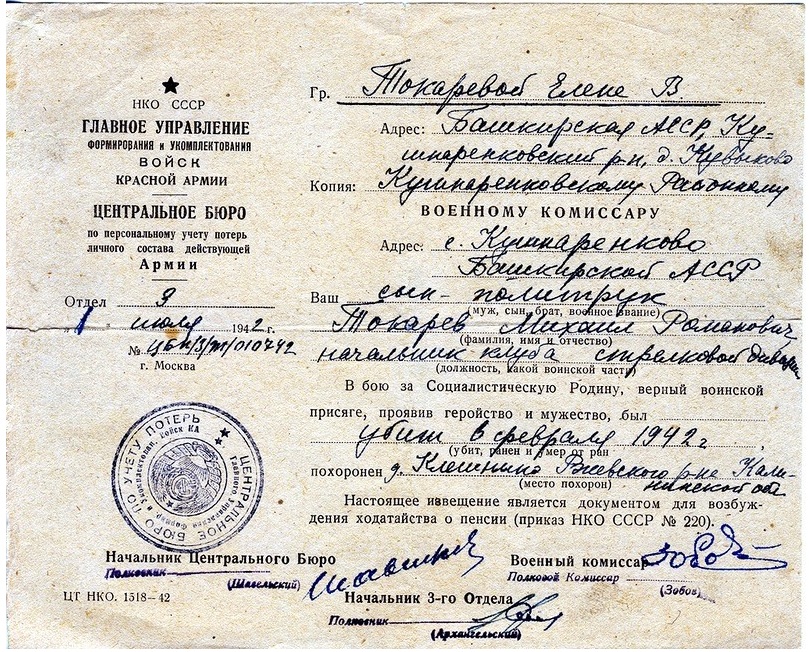 НКО СССР
ГЛАВНОЕ УПРАВЛЕНИЕ
ФОРМИРОВАНИЯ И УКОМПЛЕКТОВАНИЯ
ВОЙСК
КРАСНОЙ АРМИИ
ЦЕНТРАЛЬНОЕ БЮРО
по персональному учету потерь
личного состава действующей
Армии
Отдел 9
"1" июля 1942 г.
№
г. Москва
Гр. Токаревой Елене В
Адрес: Башкирская АССР, Ку-
шнаренковский р-н, д. Кубыково
Копия: Кушнаренковскому Районному
ВОЕННОМУ КОМИССАРУ
Адрес: с. Кушнаренково
Башкирской АССР
Ваш сын - политрук
(муж, сын, брат, военное звание)
Токарев Михаил Романович,
(фамилия, имя и отчество)
начальник клуба стрелковой дивизии
(должность, какой воинской части)
В бою за Социалистическую Родину, верный воинской
присяге, проявив геройство и мужество, был
убит в феврале 1942 г
(убит, ранен и умер от ран
похоронен д. Ржевского р-на Кали-
нинской обл
(место похорон)
Настоящее извещение является документом для возбуж-
дения ходатайства о пенсии (приказ НКО СССР № 220).
ЦЕНТРАЛЬНОЕ БЮРО ПО УЧЕТУ ПОТЕРЬ
Главного Управления Формир. и Укомплектован. Войск КА
Начальник Центрального Бюро
Полковник
(Шавельский)
Военный комиссар
Полковой Комиссар
(Зобов)
Начальник 3-го Отдела
Полковник
(Архангельский)
ЦТ НКО. 1518—42